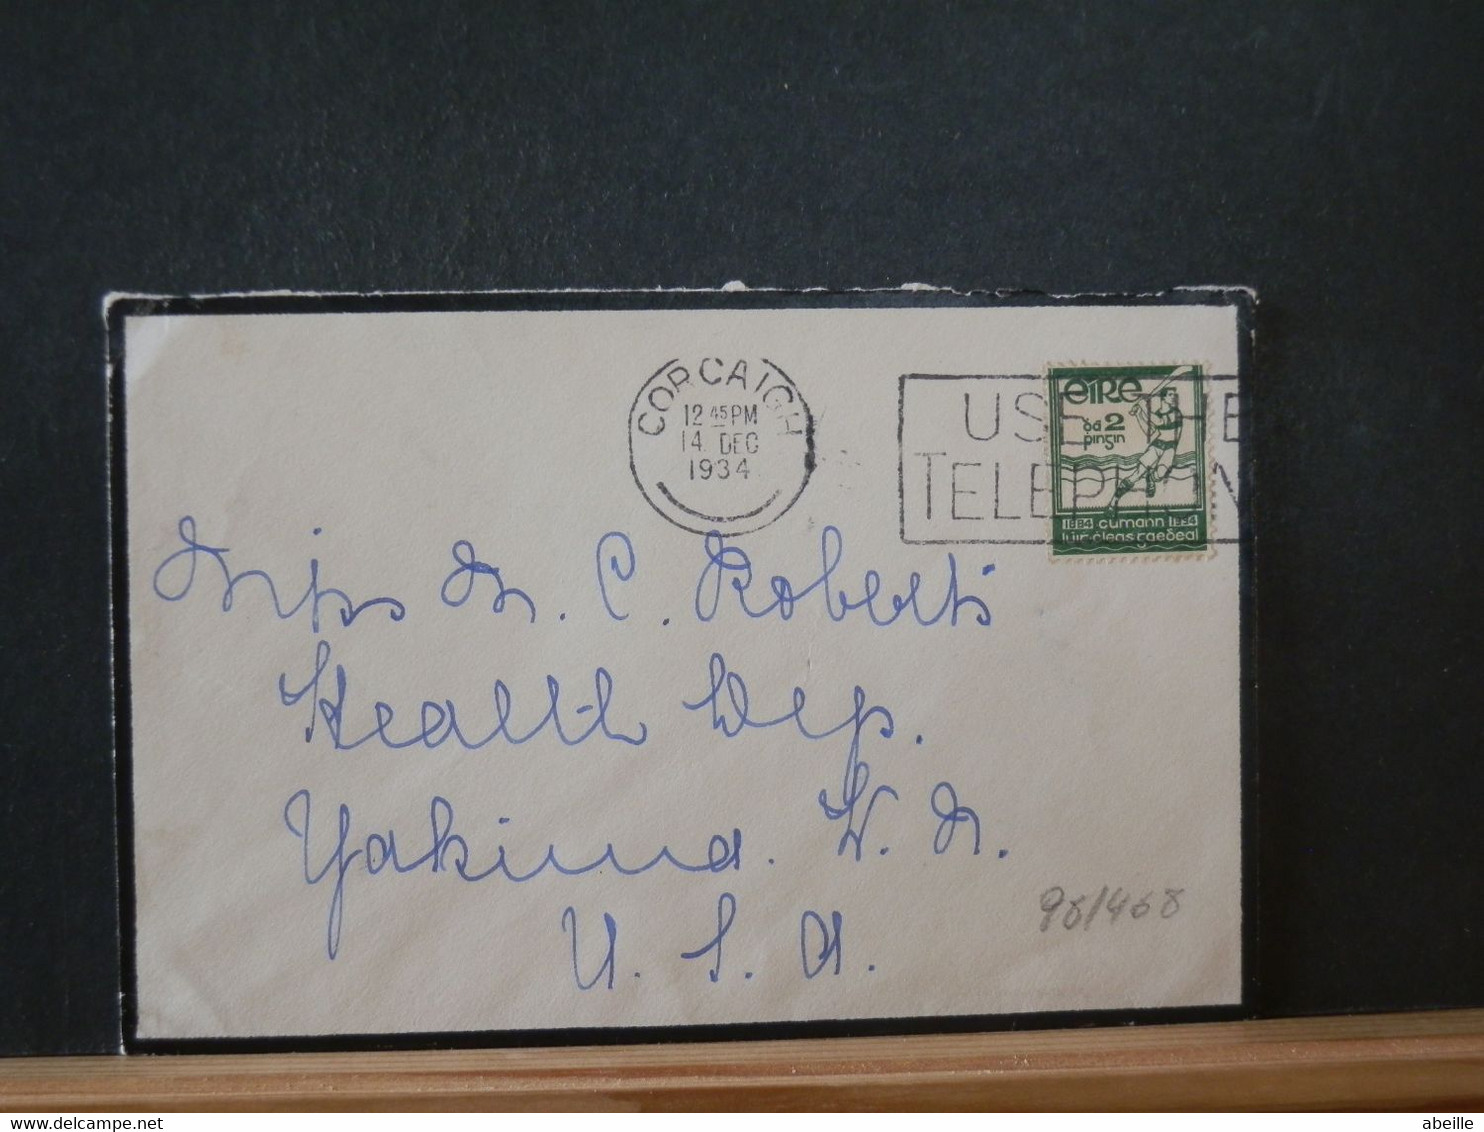 CORCAIGH
12 45 PM
14 DEC
1934
USE THE
TELEPHON
éire
ṫá 2
pingin
1884 cumann 1934
lúiṫ-ċleas gaeḋeal
Miss M. C. Roberts
Health Dep.
Yakima. W. N.
U. S. A.
98/468
abeille